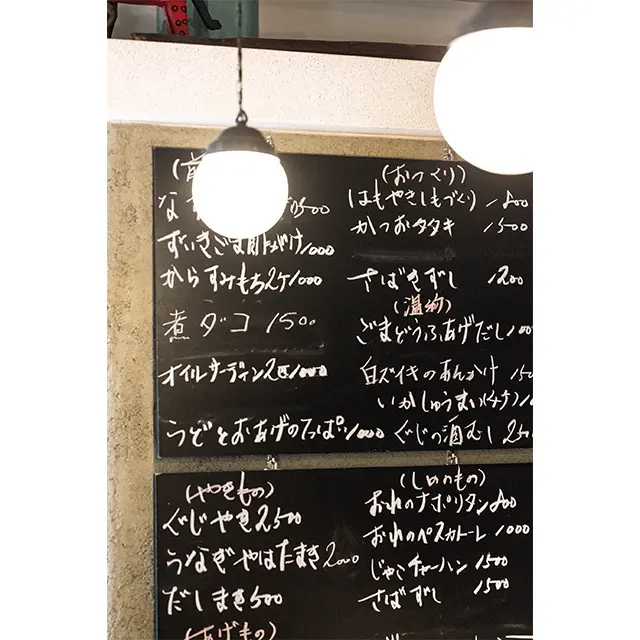 (おつくり)
はもやきしもづくり 1800
かつおタタキ 1500
さばきずし 1200
(温物)
ごまどうふあげだし
白ズイキのあんかけ
いかしゅうまい
ぐじの酒むし
なす
ずいきごま酢がけ 1000
からすみもち2ケ 1000
煮ダコ 1500
オイルサーディン 1000
うどとおあげのてっぱい 1000
(やきもの)
ぐじやき 2500
うなぎやはたまき 2000
だしまき 500
(あげもの)
(しめのもの)
おれのナポリタン 800
おれのペスカトーレ 1000
じゃこチャーハン 1500
さばずし 1500